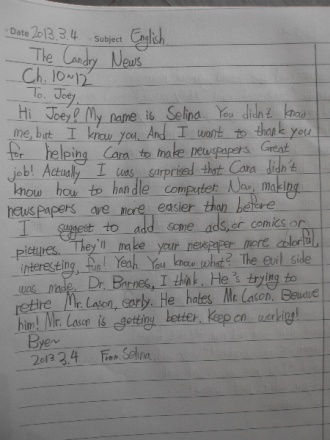 Date 2013. 3. 4 Subject English
The Landry News
Ch. 10~12
To. Joey
Hi Joey? My name is Selina. You didn't know
me, but I know you. And I want to thank you
for helping Cara to make newspapers. Great
job! Actually I was surprised that Cara didn't
know how to handle computer. Now, making
newspapers are more easier than before.
I suggest to add some ads, or comics or
pictures. They'll make your newspaper more colorful,
interesting, fun! Yeah. You know what? The evil side
was made. Dr. Barnes, I think. He's trying to
retire Mr. Lason, early. He hates Mr. Lason. Beware
him! Mr. Lason is getting better. Keep on working!
Bye~
2013. 3. 4 From Selina